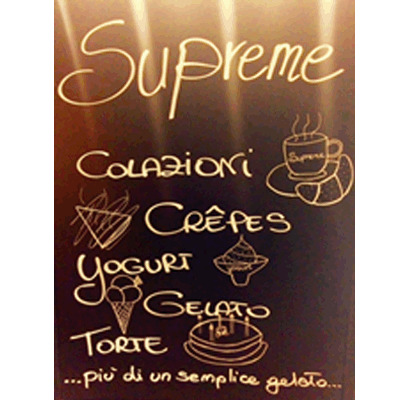 Supreme
COLAZIONI
Supreme
CRÊPES
YOGURT
GELATO
TORTE
...più di un semplice gelato...